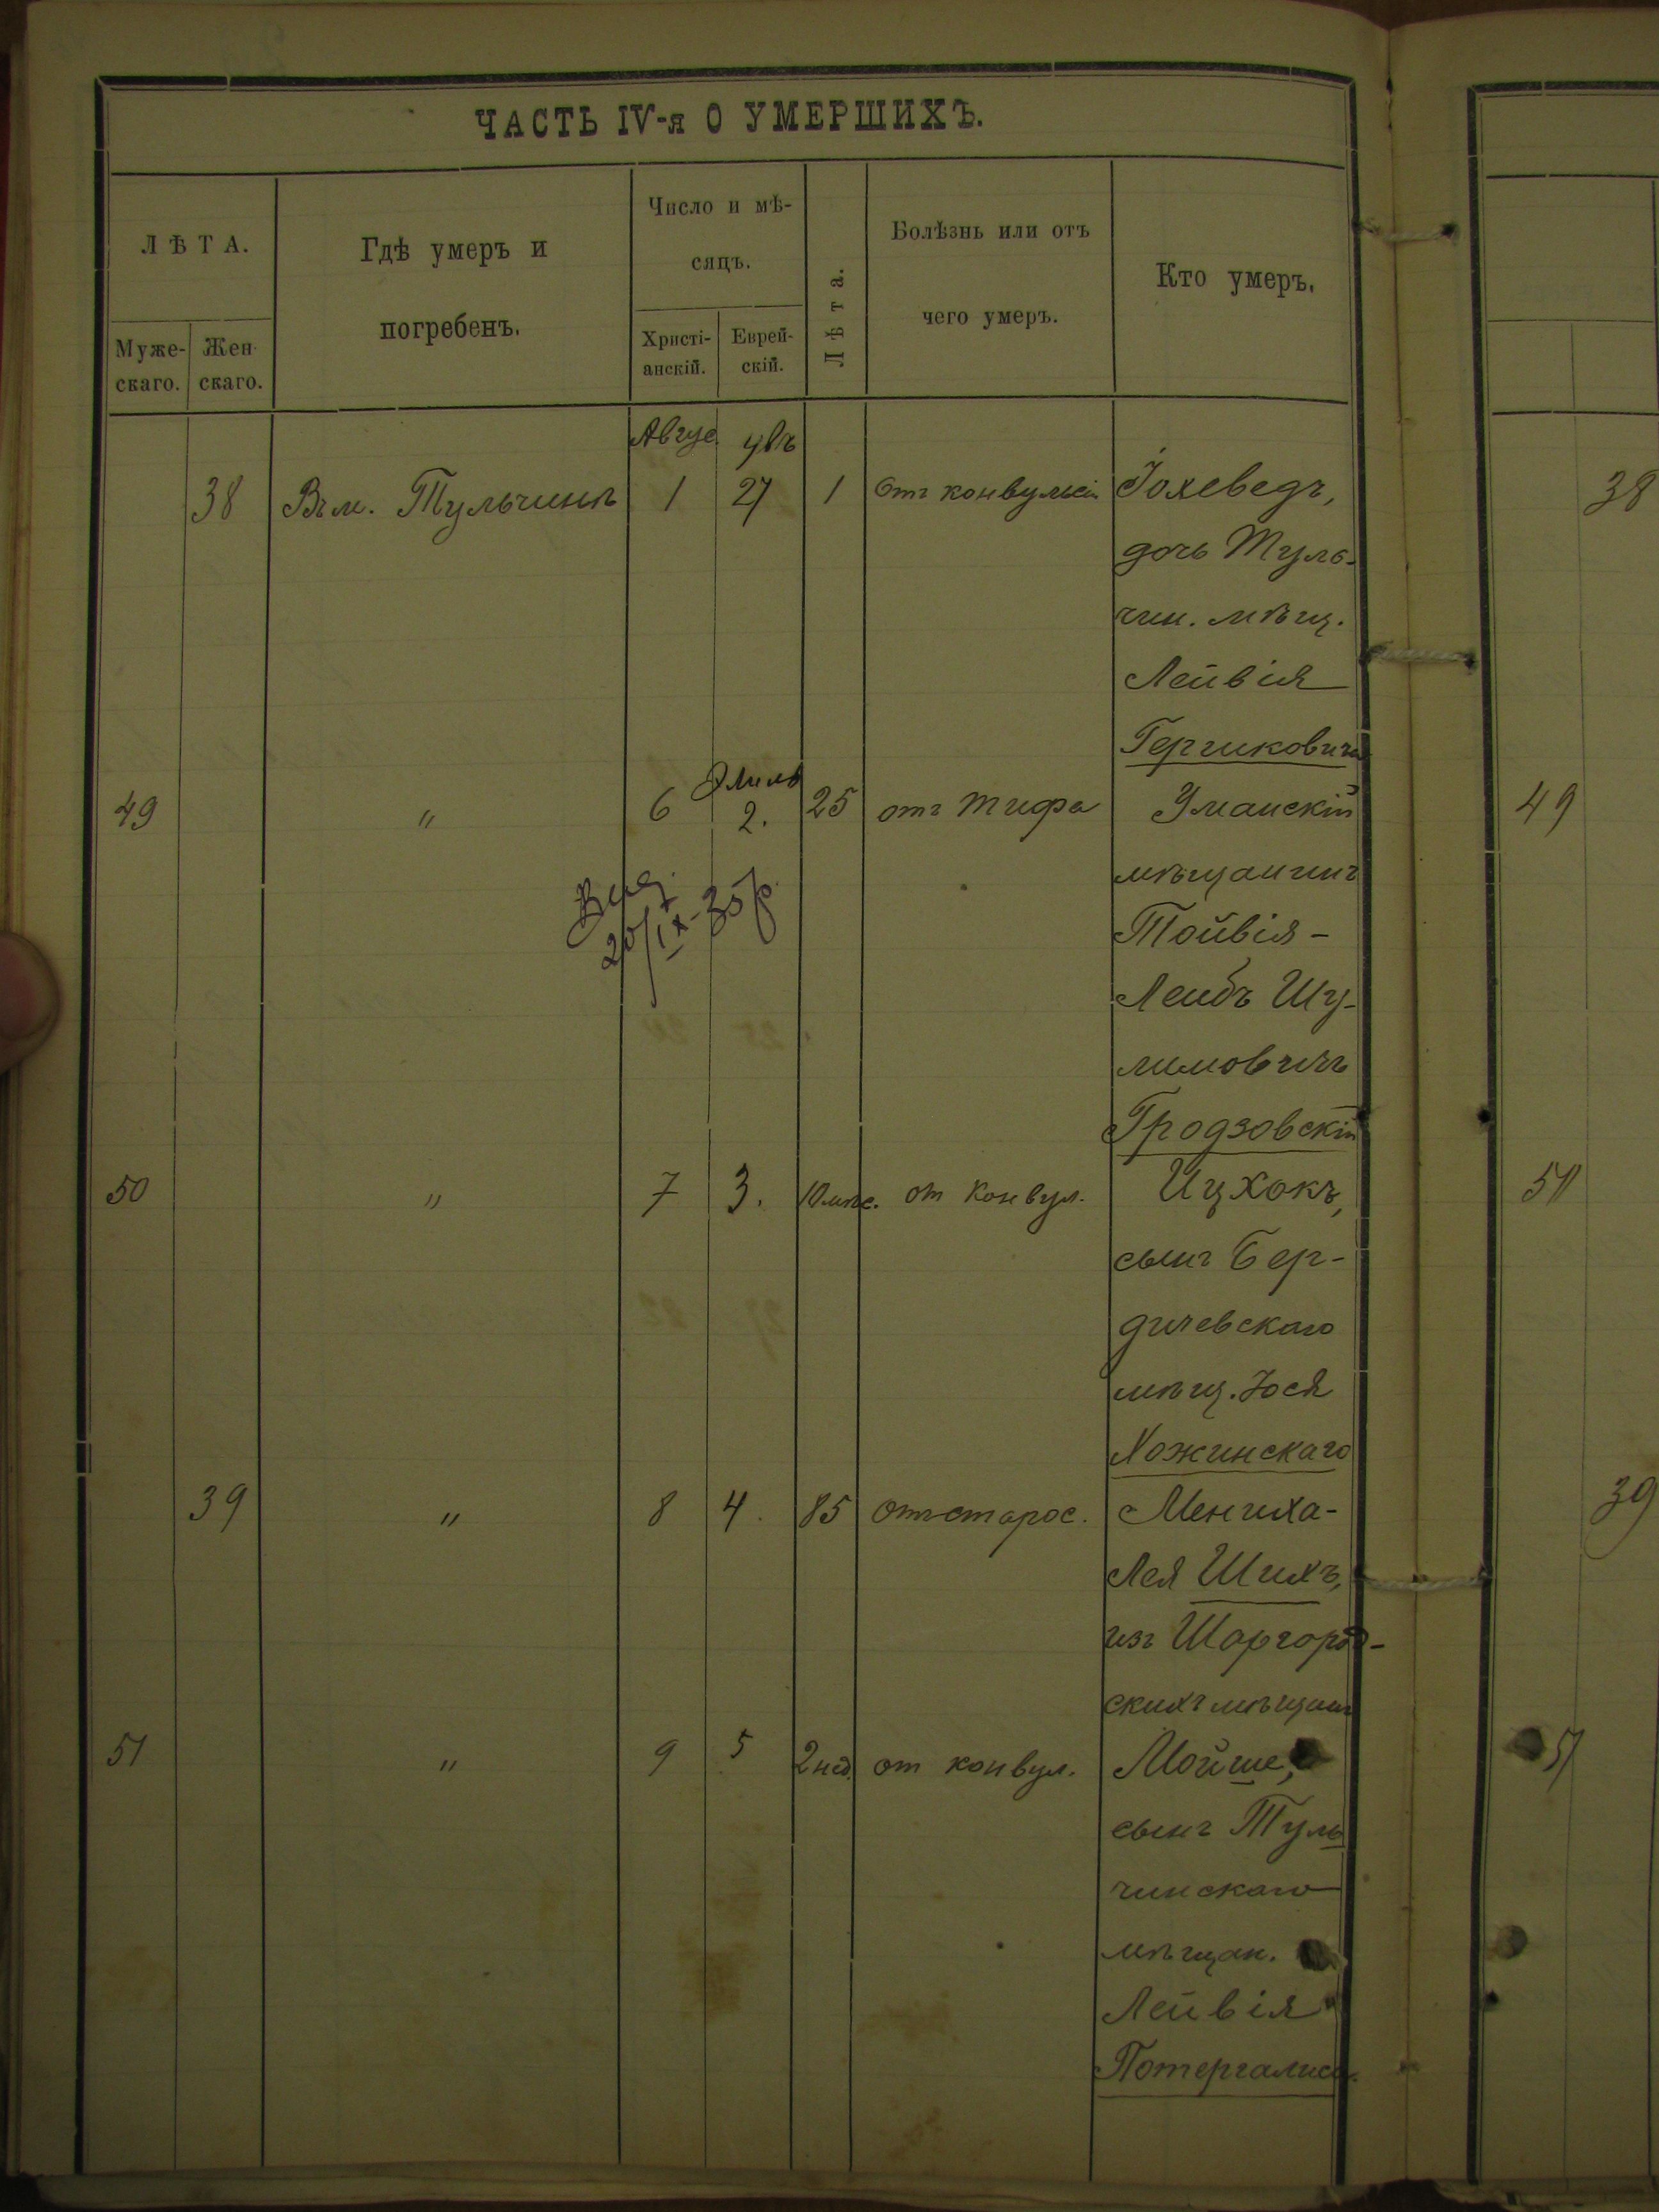 ЧАСТЬ IV-я О УМЕРШИХЪ.
ЛѢТА.
Муже-скаго.
Жен-скаго.
Гдѣ умеръ и
погребенъ.
Число и мѣ-
сяцъ.
Христі-анскій.
Еврей-скій.
Лѣта.
Болѣзнь или отъ
чего умеръ.
Кто умеръ.
Авгус.
38 Въ м. Тульчинѣ 1 27 1 отъ конвульсіи Іохеведъ,
дочь Туль-
чин. мѣщ.
Лейвія
Гершковича
Элилъ
49 " 6 2. 25 отъ тифа Уманскій
мѣщанинъ
Тойвія-
Лейбъ Шу-
лимовичъ
Гродзовскій
20/IX-35 р.
50 " 7 3. 10 мѣс. от конвул. Ицхокъ,
сынъ Бер-
дичевскаго
мѣщ. Іося
Хожинскаго
39 " 8 4. 85 отъ старос. Мениха-
Лея Шихъ,
изъ Шаргород-
скихъ мѣщанъ
51 " 9 5 2 нед. от конвул. Мойше,
сынъ Туль
чинскаго
мѣщан.
Лейвія
38
49
50
39
51